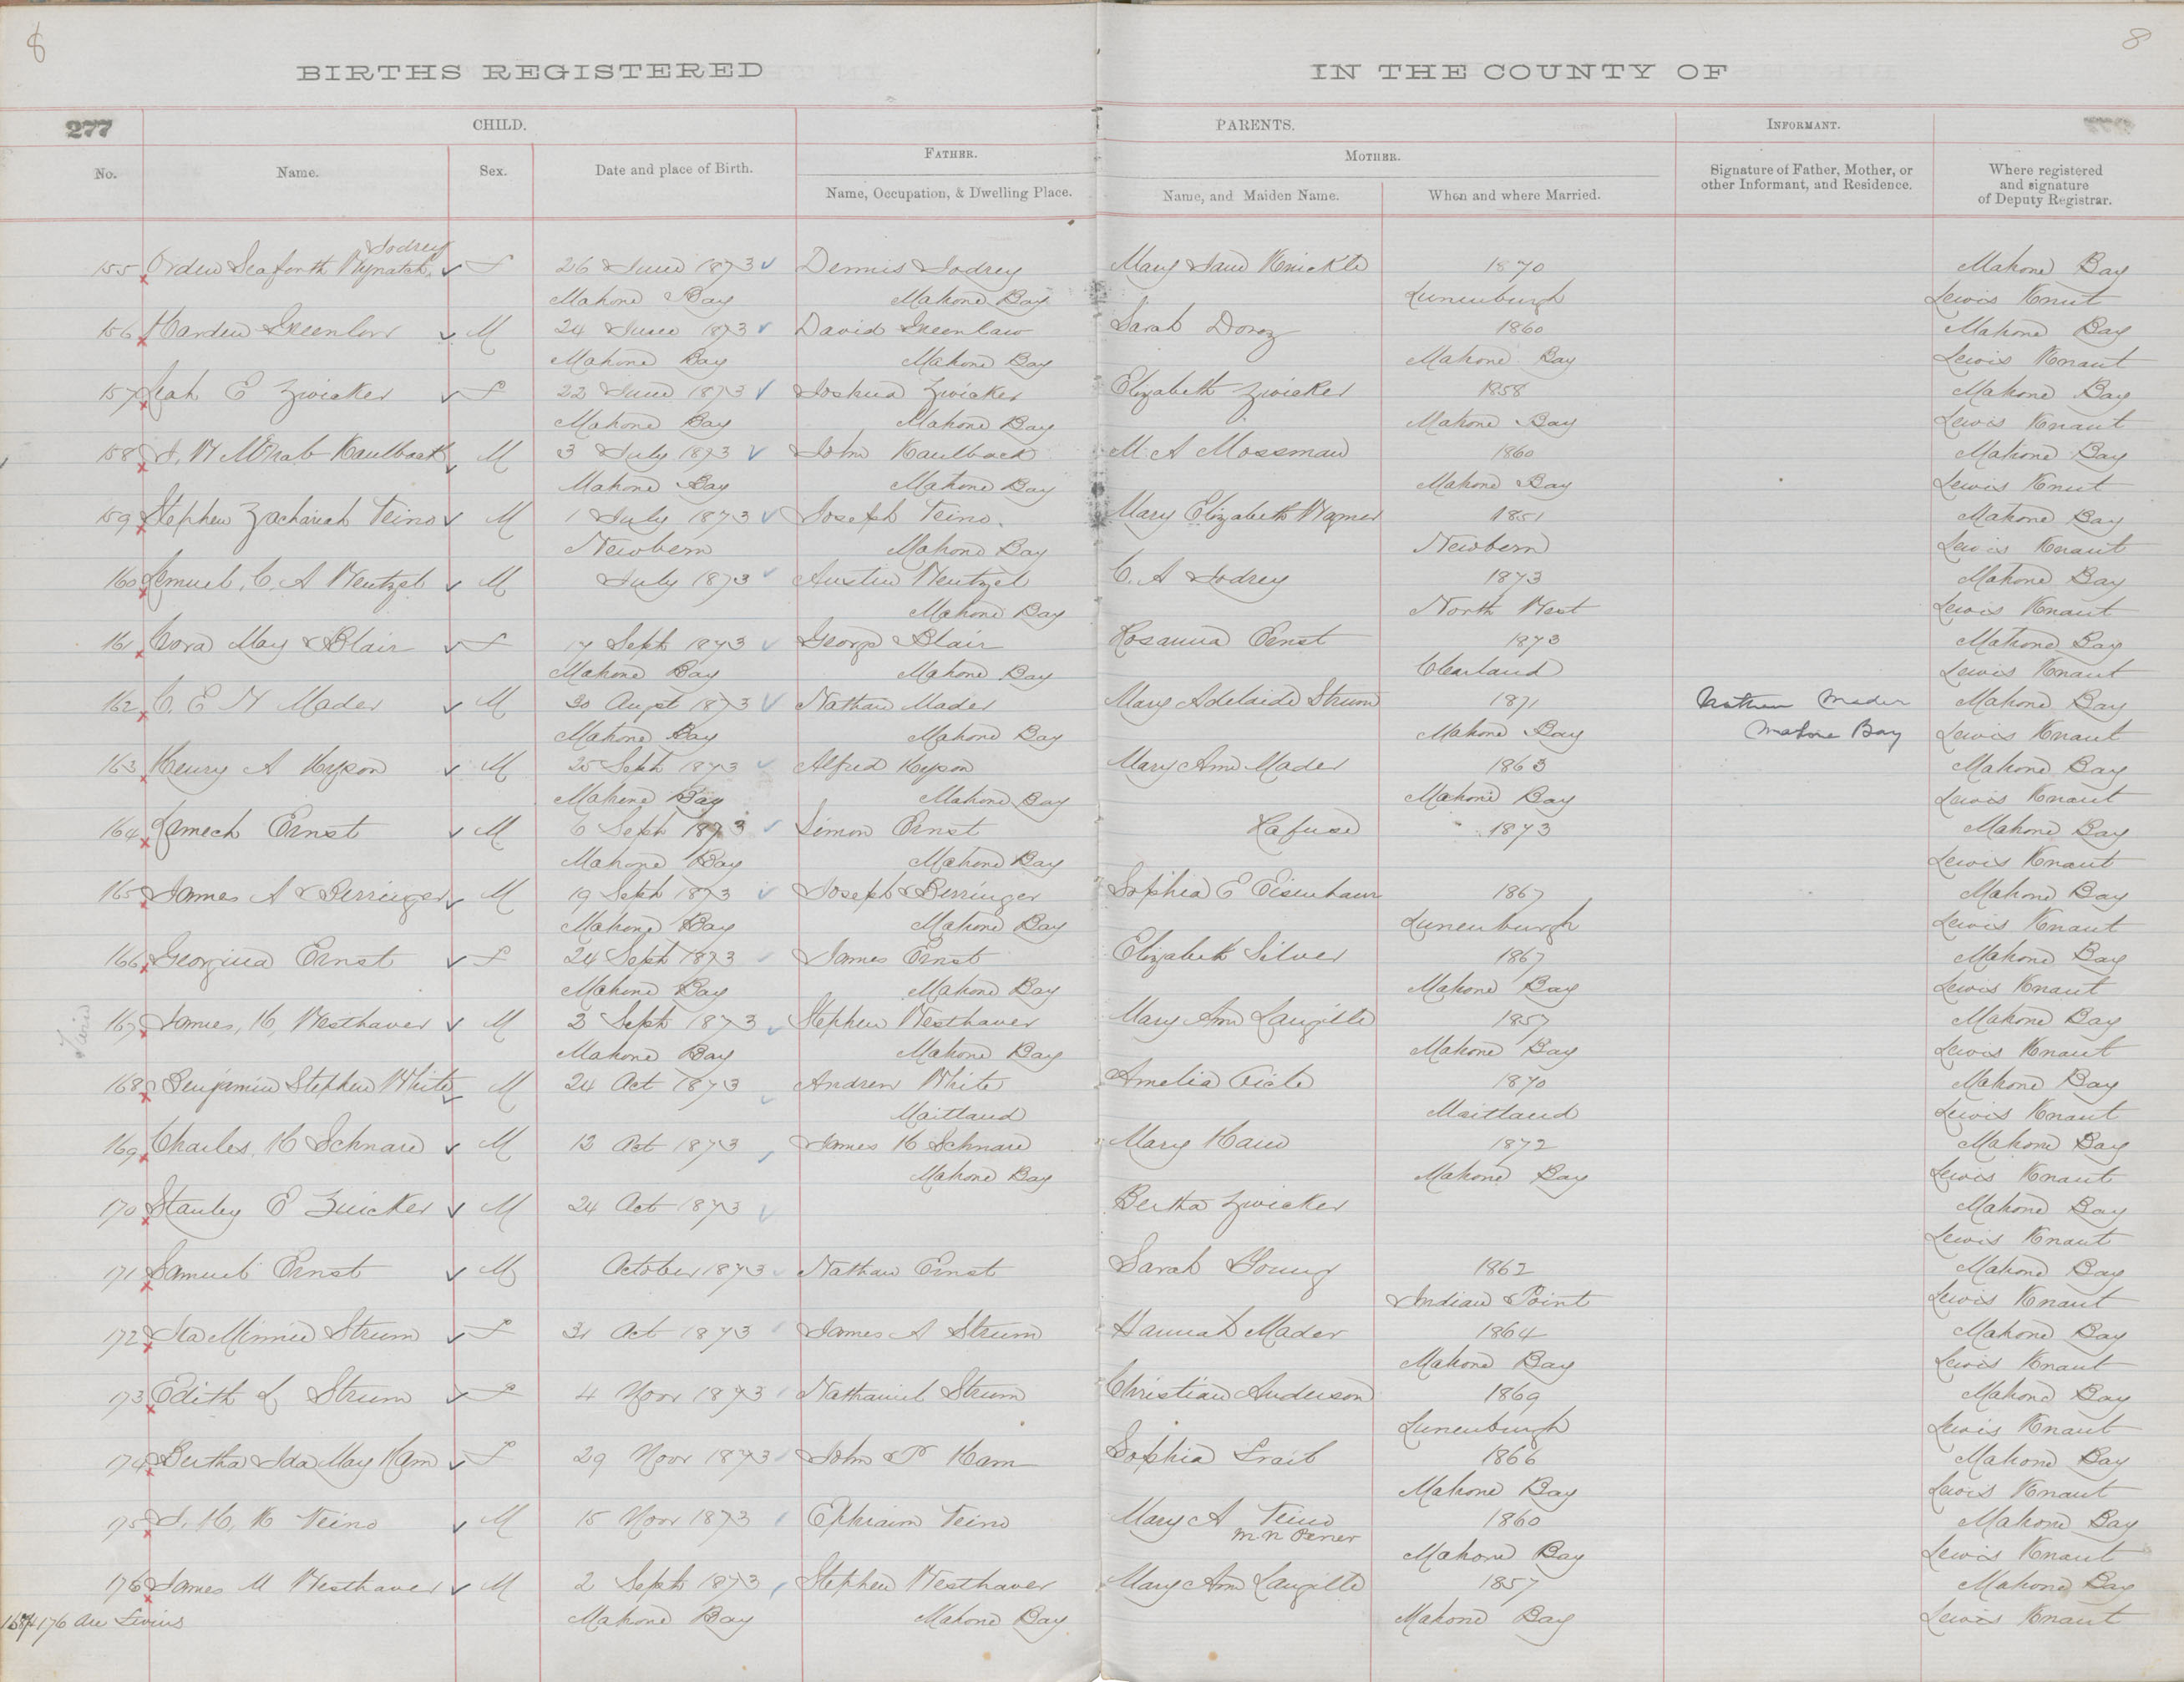 8
8
BIRTHS REGISTERED IN THE COUNTY OF
277 CHILD. PARENTS. INFORMANT.
No. Name. Sex. Date and place of Birth. FATHER. MOTHER. Signature of Father, Mother, or Where registered
other Informant, and Residence. and signature
Name, Occupation, & Dwelling Place. Name, and Maiden Name. When and where Married. of Deputy Registrar.
Jodrey
155 Seaforth F 26 June 1873 Dennis Jodrey Mary Jane Knickle 1870 Mahone Bay
Mahone Bay Mahone Bay Lunenburgh Lewis Knaut
156 Harden Greenlow M 24 June 1873 David Greenlaw Sarah Dorey 1860 Mahone Bay
Mahone Bay Mahone Bay Mahone Bay Lewis Knaut
157 Leah E Zwicker F 22 June 1873 Joshua Zwicker Elizabeth Zwicker 1858 Mahone Bay
Mahone Bay Mahone Bay Mahone Bay Lewis Knaut
158 J. W McNab Kaulback M 3 July 1873 John Kaulback M. A Mossman 1860 Mahone Bay
Mahone Bay Mahone Bay Mahone Bay Lewis Knaut
159 Stephen Zachariah Veino M 1 July 1873 Joseph Veino. Mary Elizabeth Wagner 1851 Mahone Bay
Newbern Mahone Bay Newbern Lewis Knaut
160 Lemuel. C. A Wentzel M July 1873 Austin Wentzel C. A Jodrey 1873 Mahone Bay
Mahone Bay North West Lewis Knaut
161 Cora May Blair F 17 Sept 1873 George Blair Rosanna Ernst 1873 Mahone Bay
Mahone Bay Mahone Bay Clearland Lewis Knaut
162 C. E N Mader M 30 Augst 1873 Nathan Mader Mary Adelaide Strum 1871 Nathan Mader Mahone Bay
Mahone Bay Mahone Bay Mahone Bay Mahone Bay Lewis Knaut
163 Henry A Hyson M 25 Sept 1873 Alfred Hyson Mary Ann Mader 1863 Mahone Bay
Mahone Bay Mahone Bay Mahone Bay Lewis Knaut
164 Lamech Ernst M 6 Sept 1873 Simon Ernst Rafuse 1873 Mahone Bay
Mahone Bay Mahone Bay Lewis Knaut
165 James A Berringer M 19 Sept 1873 Joseph Berringer Sophia E Eisenhaur 1867 Mahone Bay
Mahone Bay Mahone Bay Lunenburgh Lewis Knaut
166 Georgina Ernst F 24 Sept 1873 James Ernst Elizabeth Silver 1867 Mahone Bay
Mahone Bay Mahone Bay Mahone Bay Lewis Knaut
Twin
167 James, H, Westhaver M 2 Sept 1873 Stephen Westhaver Mary Ann Langille 1857 Mahone Bay
Mahone Bay Mahone Bay Mahone Bay Lewis Knaut
168 Benjamin Stephen White M 24 Oct 1873 Andrew White Amelia 1870 Mahone Bay
Maitland Maitland Lewis Knaut
169 Charles. H Schnare M 12 Oct 1873 James H Schnare Mary Ham 1872 Mahone Bay
Mahone Bay Mahone Bay Lewis Knaut
170 Stanley E Zuicker M 24 Oct 1873 Bertha Zwicker Mahone Bay
Lewis Knaut
171 Samuel Ernst M October 1873 Nathan Ernst Sarah Young 1862 Mahone Bay
Indian Point Lewis Knaut
172 Ida Minnie Strum F 31 Oct 1873 James A Strum Hannah Mader 1864 Mahone Bay
Mahone Bay Lewis Knaut
173 Edith L Strum F 4 Novr 1873 Nathaniel Strum Christian Anderson 1869 Mahone Bay
Lunenburgh Lewis Knaut
174 Bertha Ida May Ham F 29 Novr 1873 John P Ham Sophia Frail 1866 Mahone Bay
Mahone Bay Lewis Knaut
175 J. H, K Veino M 15 Novr 1873 Ephraim Veino Mary A Veino 1860 Mahone Bay
m.n Oxner
Mahone Bay Lewis Knaut
176 James M Westhaver M 2 Sept 1873 Stephen Westhaver Mary Ann Langille 1857 Mahone Bay
167+176 are Twins Mahone Bay Mahone Bay Mahone Bay Lewis Knaut